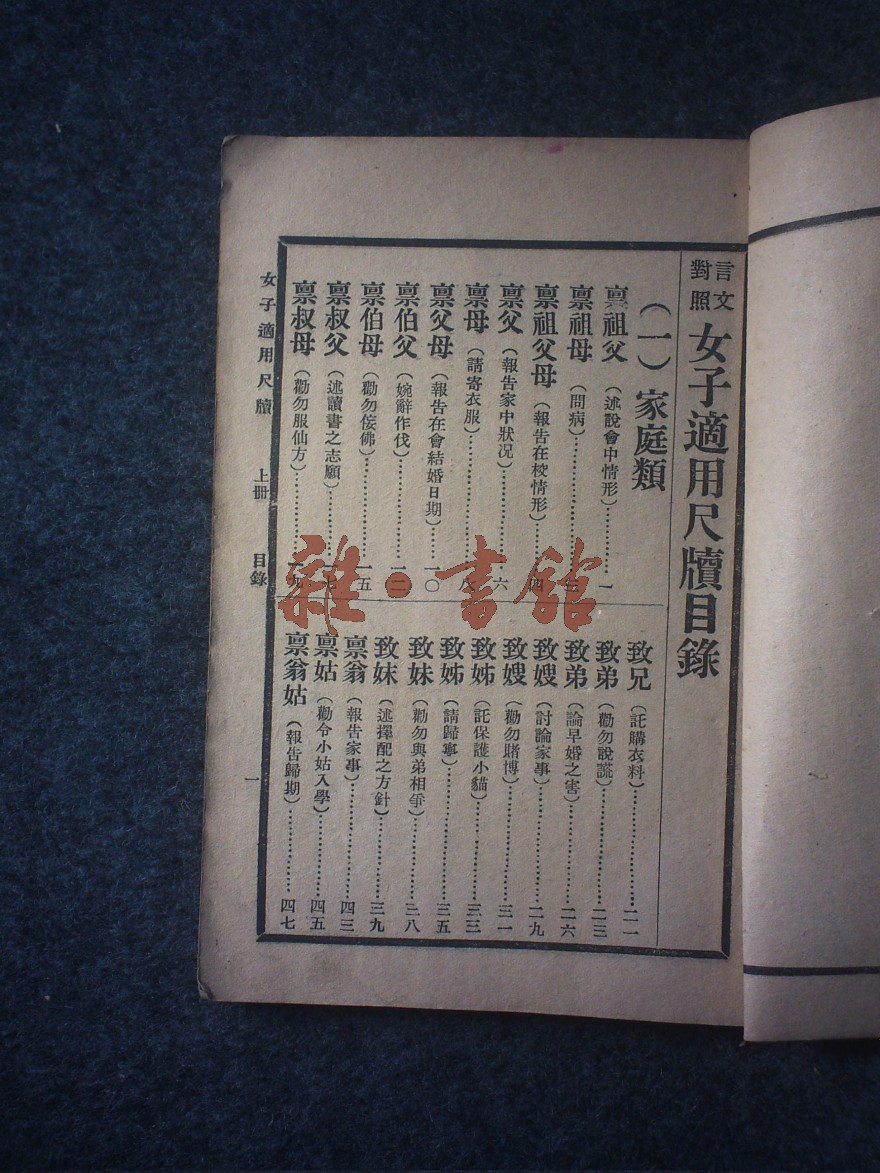 言文對照 女子適用尺牘目錄
(一) 家庭類
禀祖父 (述說會中情形)…………一
禀祖母 (問病)…………三
禀祖父母 (報告在校情形)…………四
禀父 (報告家中狀况)…………六
禀母 (請寄衣服)…………八
禀父母 (報告在會結婚日期)…………一〇
禀伯父 (婉辭作伐)…………一二
禀伯母 (勸勿佞佛)…………一五
禀叔父 (述讀書之志願)…………一七
禀叔母 (勸勿服仙方)…………一九
致兄 (託購衣料)…………二一
致弟 (勸勿說謊)…………二三
致弟 (論早婚之害)…………二六
致嫂 (討論家事)…………二九
致嫂 (勸勿賭博)…………三一
致姊 (託保護小貓)…………三三
致姊 (請歸寧)…………三五
致妹 (勸勿與弟相爭)…………三八
致妹 (述擇配之方針)…………三九
禀翁 (報告家事)…………四三
禀姑 (勸令小姑入學)…………四五
禀翁姑 (報告歸期)…………四七
女子適用尺牘 上冊 目錄 一
雜·書館